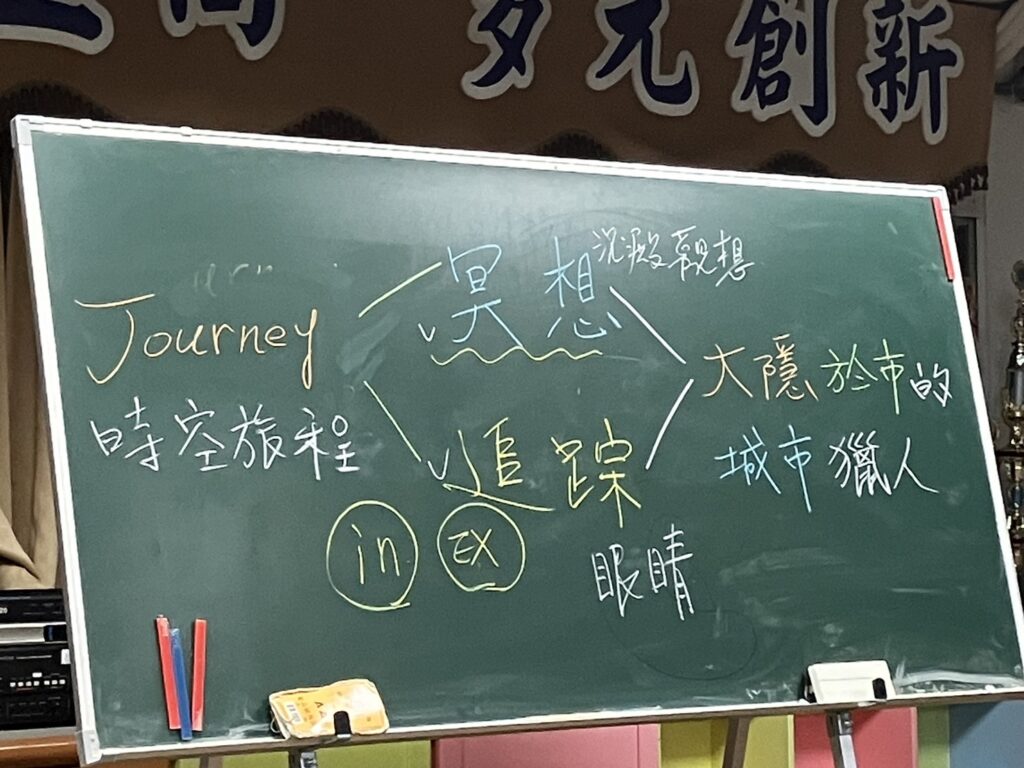 多元創新
Journey
時空旅程
冥想
沉澱觀想
追踪
in
EX
眼睛
大隱於市的
城市獵人